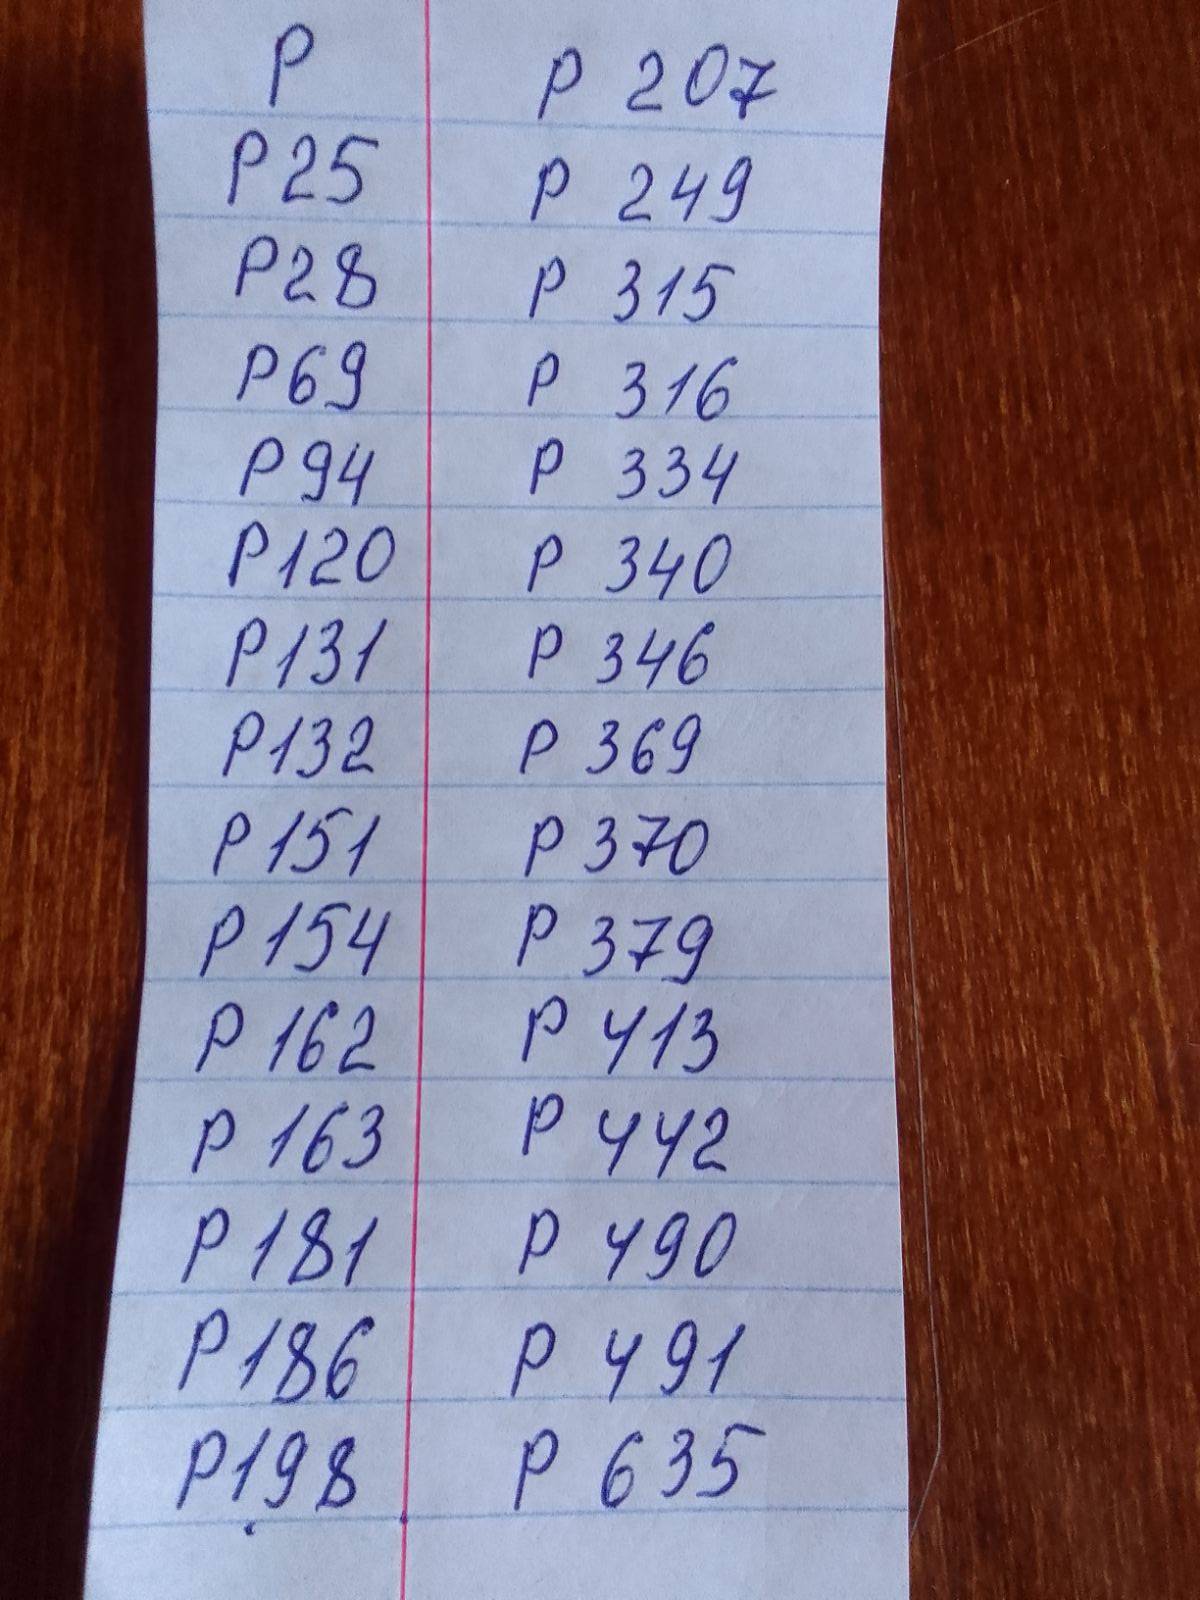 P
P25
P28
P69
P94
P120
P131
P132
P151
P154
P 162
P 163
P181
P186
P198
P 207
P 249
P 315
P 316
P 334
P 340
P 346
P 369
P 370
P 379
P 413
P 442
P 490
P 491
P 635